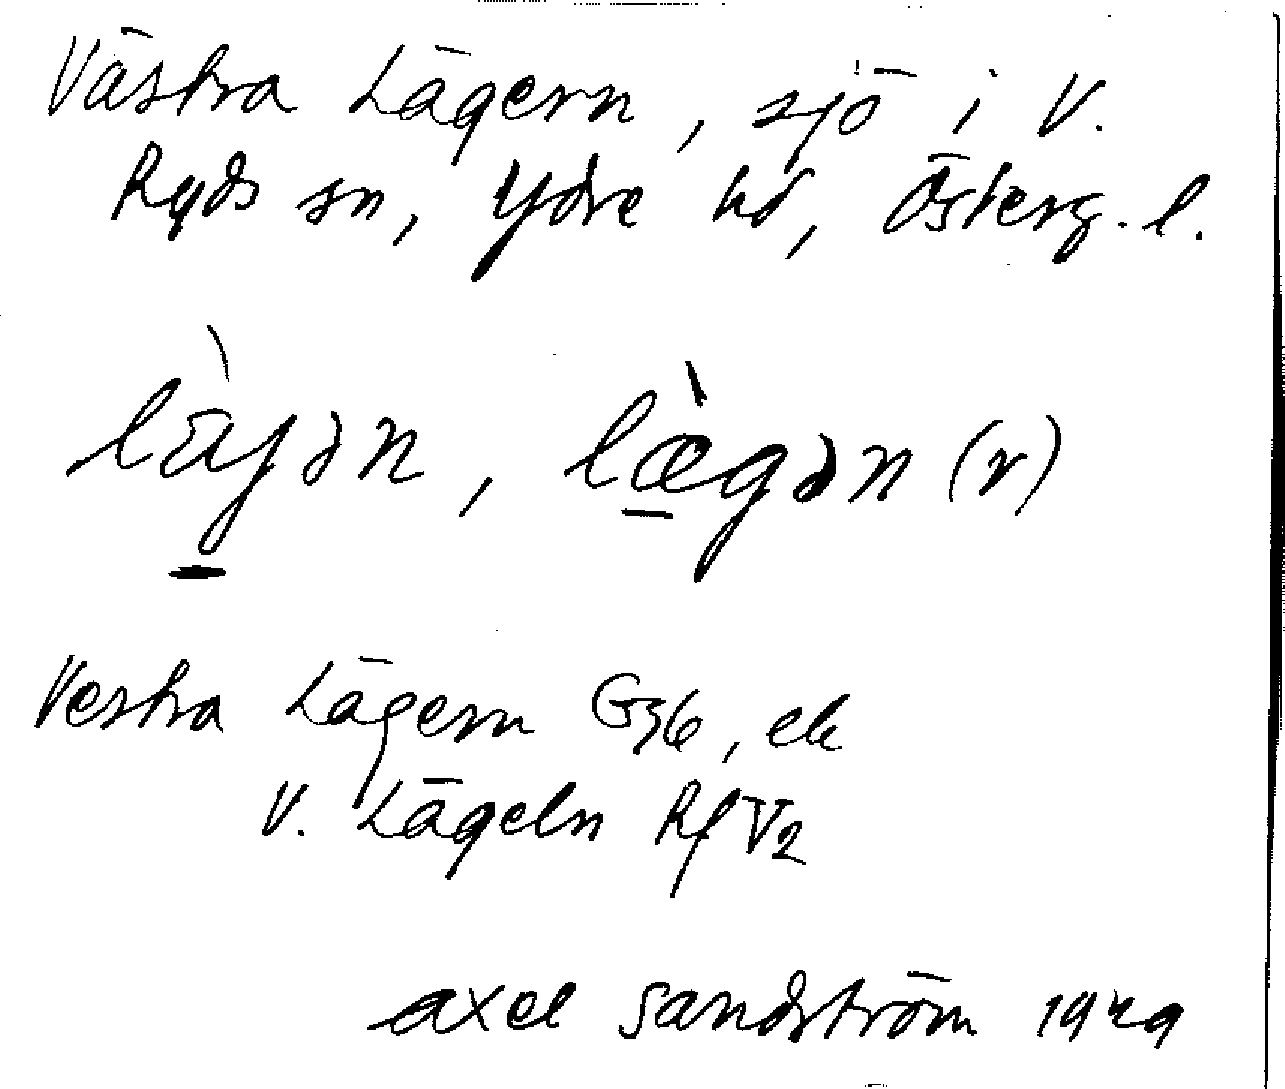 Västra Lägern, sjö i V.
Ryds sn, Ydre hd, Österg. l.
lä̀jən, læ̀gən (r)
Vestra Lägern G36, ek
V. Lägeln RfV2
Axel Sandström 1929